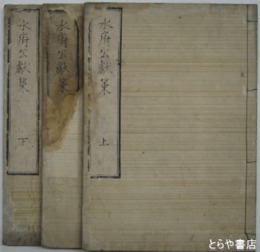 水府公献策
上
水府公献策
水府公献策
下
とらや書店